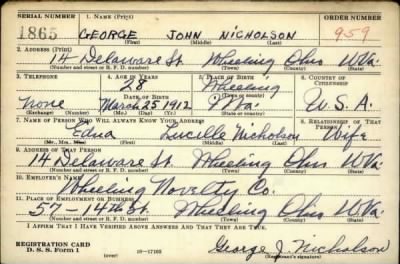 SERIAL NUMBER 1. NAME (Print) ORDER NUMBER
1865 GEORGE JOHN NICHOLSON 959
(First) (Middle) (Last)
2. ADDRESS (Print)
14 Delaware St. Wheeling Ohio W.Va.
(Number and street or R. F. D. number) (Town) (County) (State)
3. TELEPHONE 4. AGE IN YEARS 5. PLACE OF BIRTH 6. COUNTRY OF CITIZENSHIP
28 Wheeling
DATE OF BIRTH (Town or county)
None March 25 1912 W.Va. U.S.A.
(Exchange) (Number) (Mo.) (Day) (Yr.) (State or country)
7. NAME OF PERSON WHO WILL ALWAYS KNOW YOUR ADDRESS 8. RELATIONSHIP OF THAT PERSON
Edna Lucille Nicholson Wife
(Mr., Mrs., Miss) (First) (Middle) (Last)
9. ADDRESS OF THAT PERSON
14 Delaware St. Wheeling Ohio W.Va.
(Number and street or R. F. D. number) (Town) (County) (State)
10. EMPLOYER'S NAME
Wheeling Novelty Co.
11. PLACE OF EMPLOYMENT OR BUSINESS
57-14th St. Wheeling Ohio W.Va.
(Number and street or R. F. D. number) (Town) (County) (State)
I AFFIRM THAT I HAVE VERIFIED ABOVE ANSWERS AND THAT THEY ARE TRUE.
REGISTRATION CARD George J. Nicholson
D. S. S. Form 1 (over) 16—17105 (Registrant's signature)